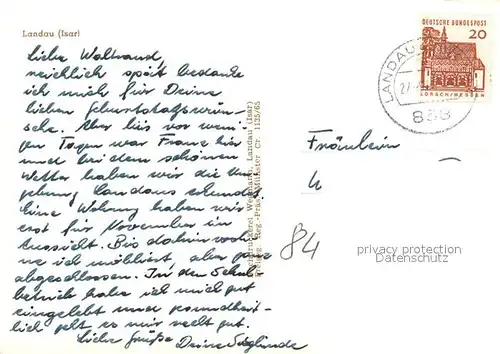 Landau (Isar)
Liebe Waltraud,
reichlich spät bedanke
ich mich für Deine
lieben Geburtstagswün-
sche. Aber bis vor weni-
gen Tagen war Franz hier
und bei dem schönen
Wetter haben wir die Um-
gebung Landaus erkundet.
Eine Wohnung haben wir
erst für November in
Aussicht. Bis dahin woh-
ne ich möbliert, aber ganz
abgeschlossen. In den Schul-
betrieb habe ich mich gut
eingelebt und gesundheit-
lich geht es mir recht gut.
Liebe Grüße Deine Sieglinde
Landau (Isar)
Freigeg. Reg.-Präs. Münster Cr. 1135/65
DEUTSCHE BUNDESPOST
20
LORSCH/HESSEN
LANDAU
27.
838
Fräulein
84
privacy protection
Datenschutz